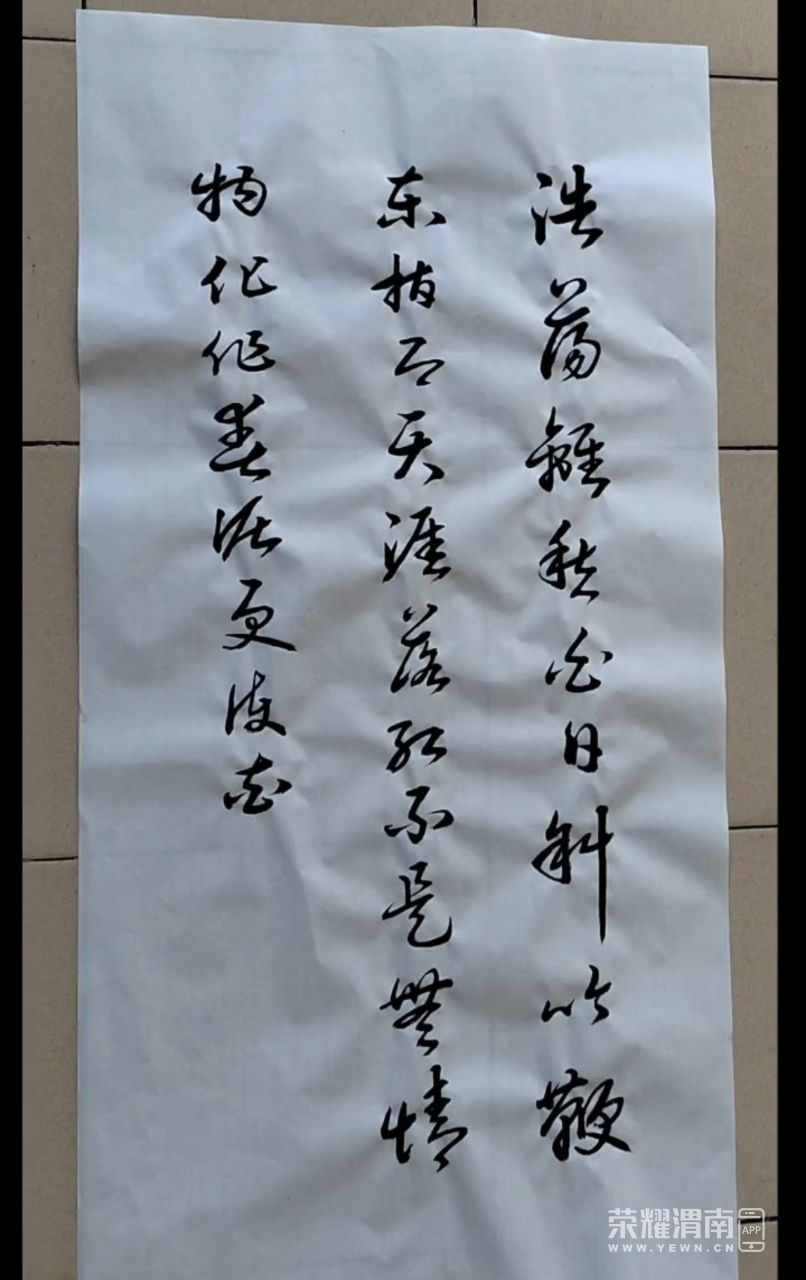 浩蕩離愁白日斜吟鞭
东指即天涯落红不是無情
物化作春泥更護花
荣耀渭南 APP
WWW.YEWN.CN